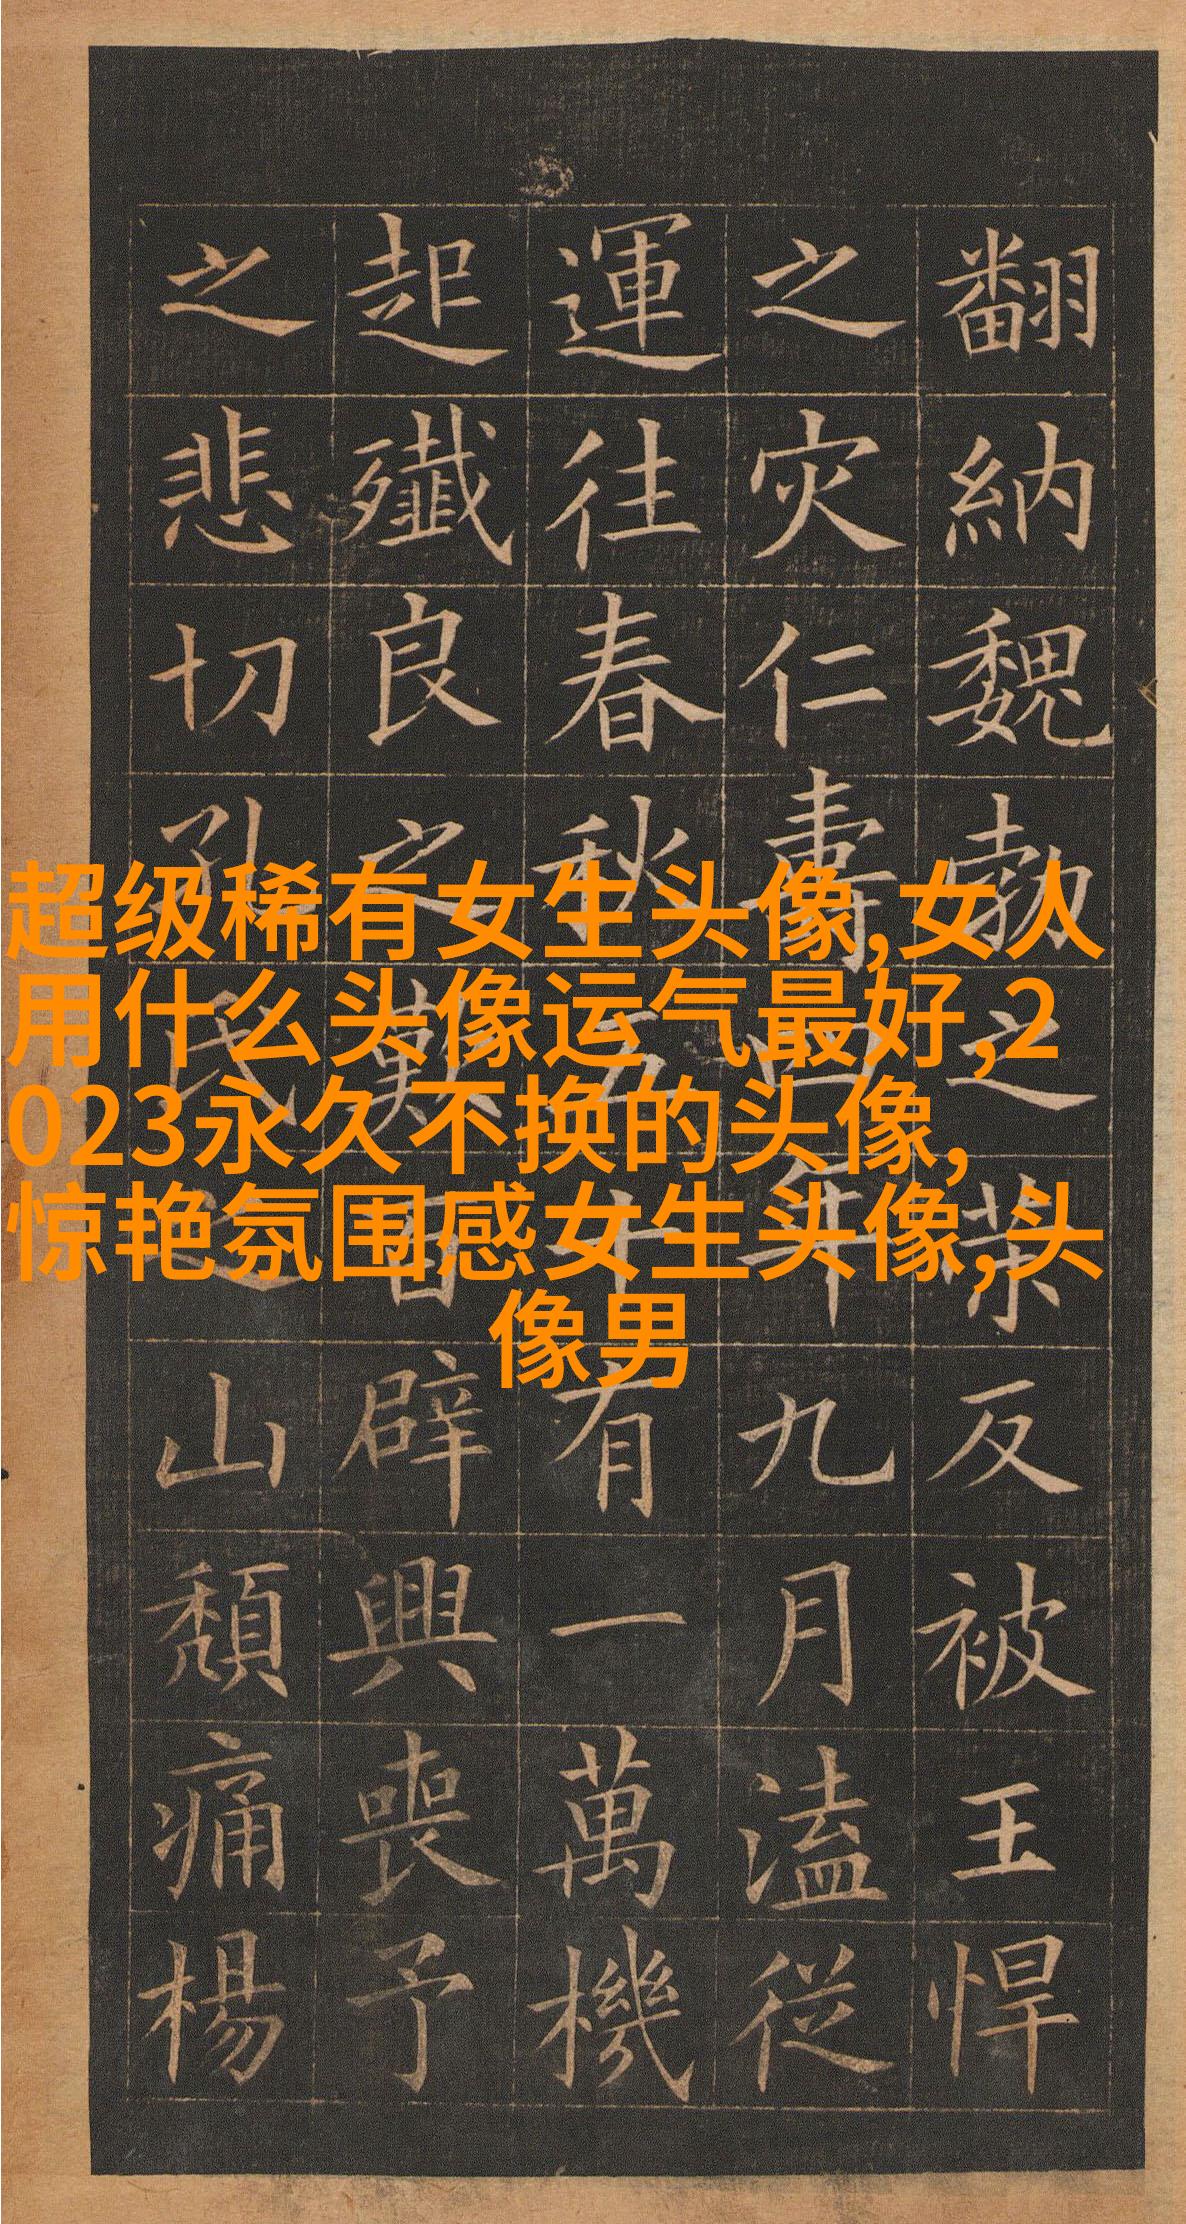 翻納魏勃之反被王悍
之灾仁壽四年九月溘從
運往春秋五十有一萬機
起殲良之歎百辟興喪予
之悲切孔氏之山頹痛楊
超级稀有女生头像,女人
用什么头像运气最好,2
023永久不换的头像,
惊艳氛围感女生头像,头
像男